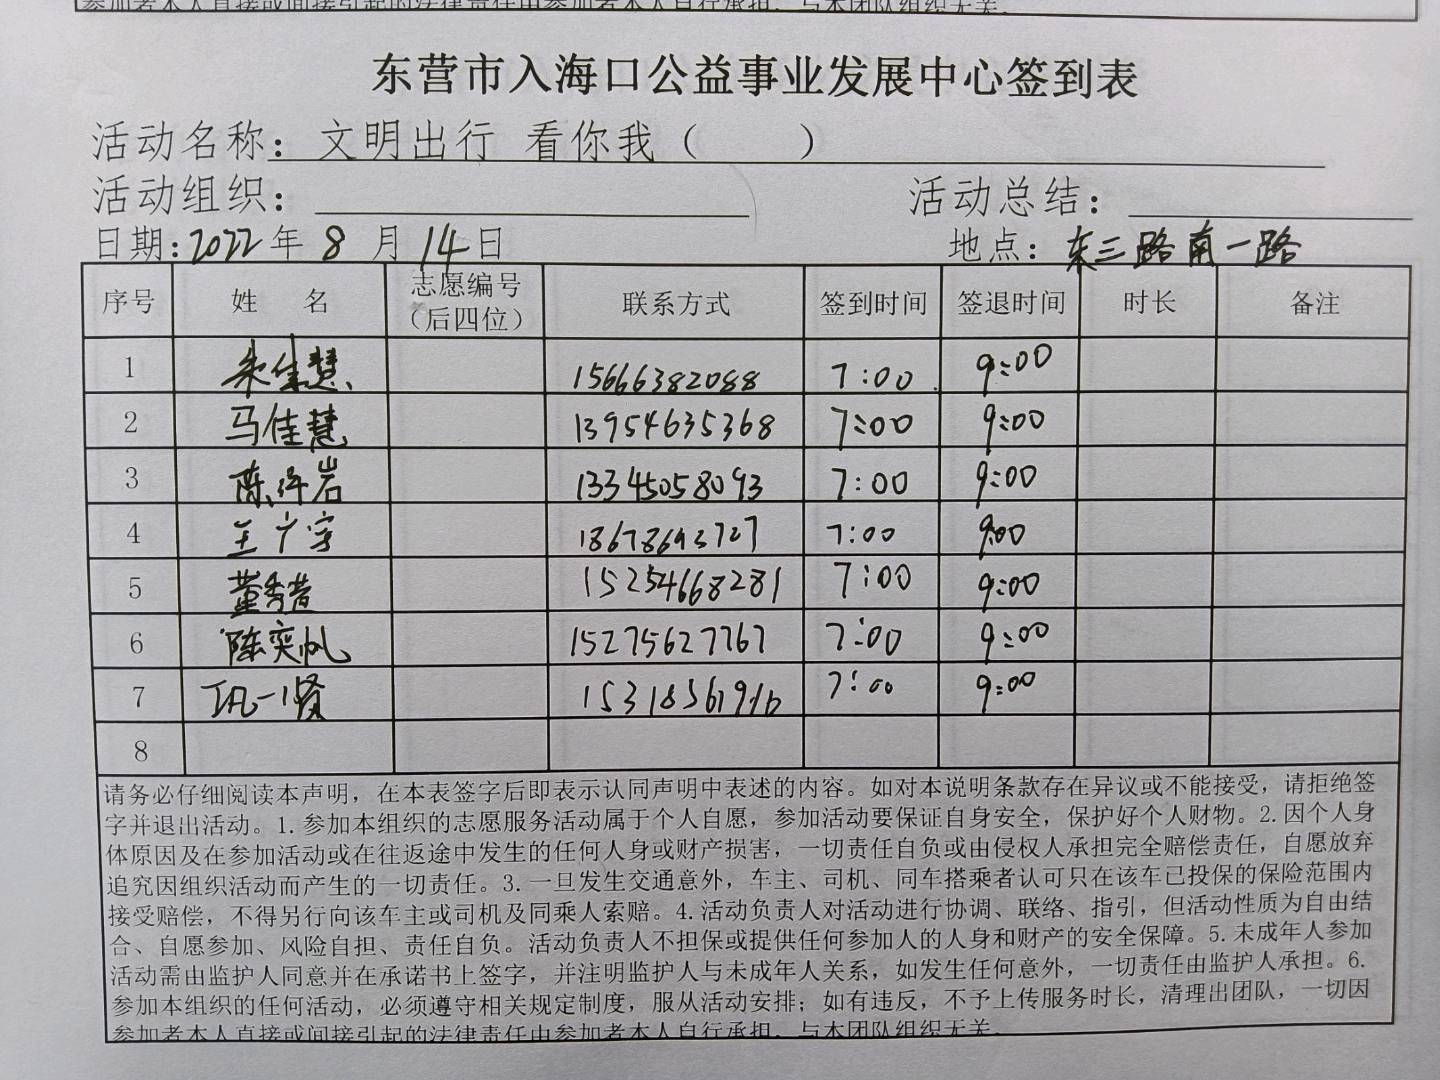 参加者本人直接或间接引起的法律责任由参加者本人自行承担，与本团队组织无关。
东营市入海口公益事业发展中心签到表
活动名称：文明出行 看你我（ ）
活动组织： 活动总结：
日期：2022年 8 月 14日 地点：东三路南一路
序号 姓 名 志愿编号（后四位） 联系方式 签到时间 签退时间 时长 备注
1 朱佳慧 15666382088 7:00 9:00
2 马佳慧 13954635368 7:00 9:00
3 陈 岩 13345058093 7:00 9:00
4 王广宇 18678693727 7:00 9:00
5 董秀 15254668281 7:00 9:00
6 陈奕帆 15275627767 7:00 9:00
7 巩一贤 7:00 9:00
8
请务必仔细阅读本声明，在本表签字后即表示认同声明中表述的内容。如对本说明条款存在异议或不能接受，请拒绝签
字并退出活动。1.参加本组织的志愿服务活动属于个人自愿，参加活动要保证自身安全，保护好个人财物。2.因个人身
体原因及在参加活动或在往返途中发生的任何人身或财产损害，一切责任自负或由侵权人承担完全赔偿责任，自愿放弃
追究因组织活动而产生的一切责任。3.一旦发生交通意外，车主、司机、同车搭乘者认可只在该车已投保的保险范围内
接受赔偿，不得另行向该车主或司机及同乘人索赔。4.活动负责人对活动进行协调、联络、指引，但活动性质为自由结
合、自愿参加、风险自担、责任自负。活动负责人不担保或提供任何参加人的人身和财产的安全保障。5.未成年人参加
活动需由监护人同意并在承诺书上签字，并注明监护人与未成年人关系，如发生任何意外，一切责任由监护人承担。6.
参加本组织的任何活动，必须遵守相关规定制度，服从活动安排；如有违反，不予上传服务时长，清理出团队，一切因
参加者本人直接或间接引起的法律责任由参加者本人自行承担，与本团队组织无关。